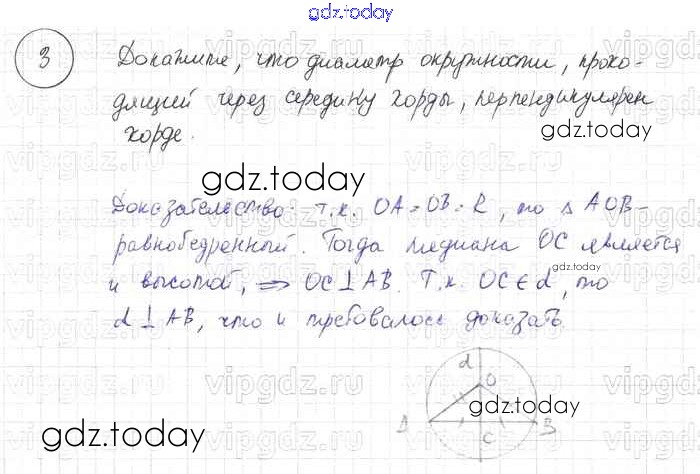 gdz.today
3 Докажите, что диаметр окружности, прохо-
дящий через середину хорды, перпендикулярен
хорде.
gdz.today
gdz.today
Доказательство: т.к. OA = OB = R, то △ AOB -
равнобедренный. Тогда медиана OC является
gdz.today
и высотой, ⇒ OC ⊥ AB. Т.к. OC ∈ d, то
d ⊥ AB, что и требовалось доказать.
vipgdz.ru
d
O
gdz.today
A
B
C
gdz.today